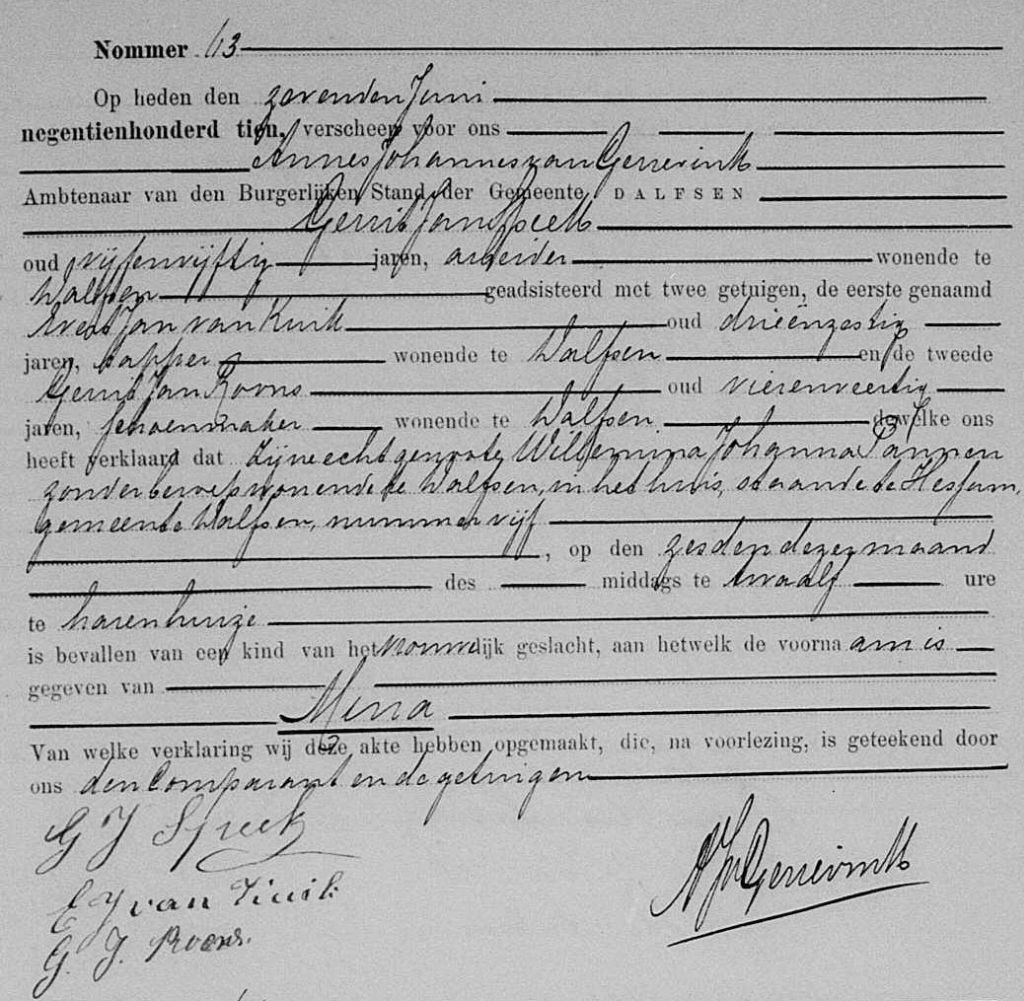 Nommer 63
Op heden den zevenden Juni
negentienhonderd tien, verscheen voor ons
Annes Johannes van Gerrevink
Ambtenaar van den Burgerlijken Stand der Gemeente DALFSEN
Gerrit Jan Speek
oud vijfenvijftig jaren, arbeider wonende te
Dalfsen geadsisteerd met twee getuigen, de eerste genaamd
Evert Jan van Kuik oud drieënzestig
jaren, tapper wonende te Dalfsen en de tweede
Gerrit Jan Roons oud vierenveertig
jaren, schoenmaker wonende te Dalfsen dewelke ons
heeft verklaard dat zijne echtgenoote Willemina Johanna
zonder beroep wonende te Dalfsen, in het huis, staande te Hessum,
gemeente Dalfsen, nummer vijf
, op den zesden dezer maand
des middags te twaalf ure
te harenhuize
is bevallen van een kind van het vrouwelijk geslacht, aan hetwelk de voornaam is
gegeven van
Mina
Van welke verklaring wij deze akte hebben opgemaakt, die, na voorlezing, is geteekend door
ons den Comparant en de getuigen
G J Speek
AJvGerrevink
E J van Kuik
G. J. Roons.